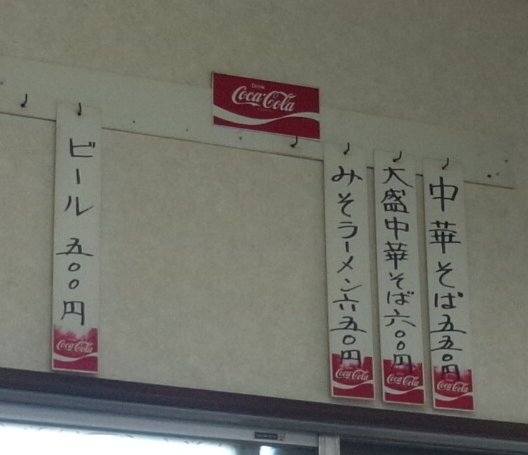 Drink
Coca-Cola
中華そば 五五〇円
Coca-Cola
大盛中華そば 六〇〇円
Coca-Cola
みそラーメン 六五〇円
Coca-Cola
ビール 五〇〇円
Coca-Cola